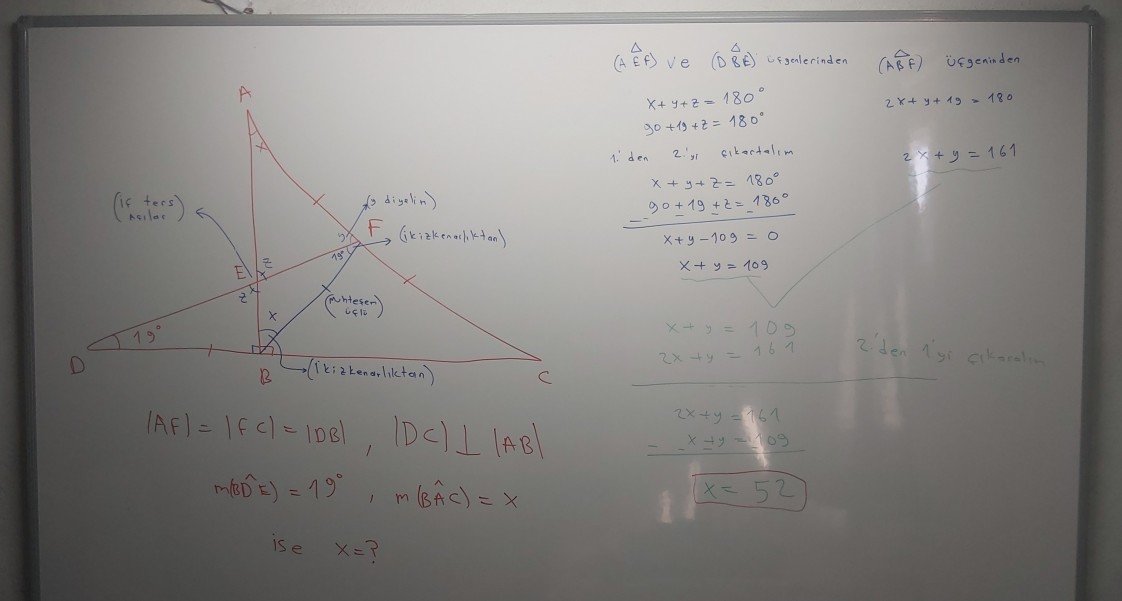 A
x
(iç ters
açılar)
(y diyelim)
y
F
(ikizkenarlıktan)
19°
E
z
x
z
x
(muhteşem
üçlü)
x
19°
D
B
(ikizkenarlıktan)
C
|AF| = |FC| = |DB| , |DC| ⊥ |AB|
m(BD̂E) = 19° , m(BÂC) = x
ise x = ?
(AÊF) ve (DB̂E) üçgenlerinden
x + y + z = 180°
90 + 19 + z = 180°
1.'den 2.'yi çıkartalım
x + y + z = 180°
90 + 19 + z = 180°
x + y - 109 = 0
x + y = 109
(AB̂F) üçgeninden
2x + y + 19 = 180
2x + y = 161
x + y = 109
2x + y = 161
2'den 1'yi çıkaralım
2x + y = 161
- x + y = 109
x = 52